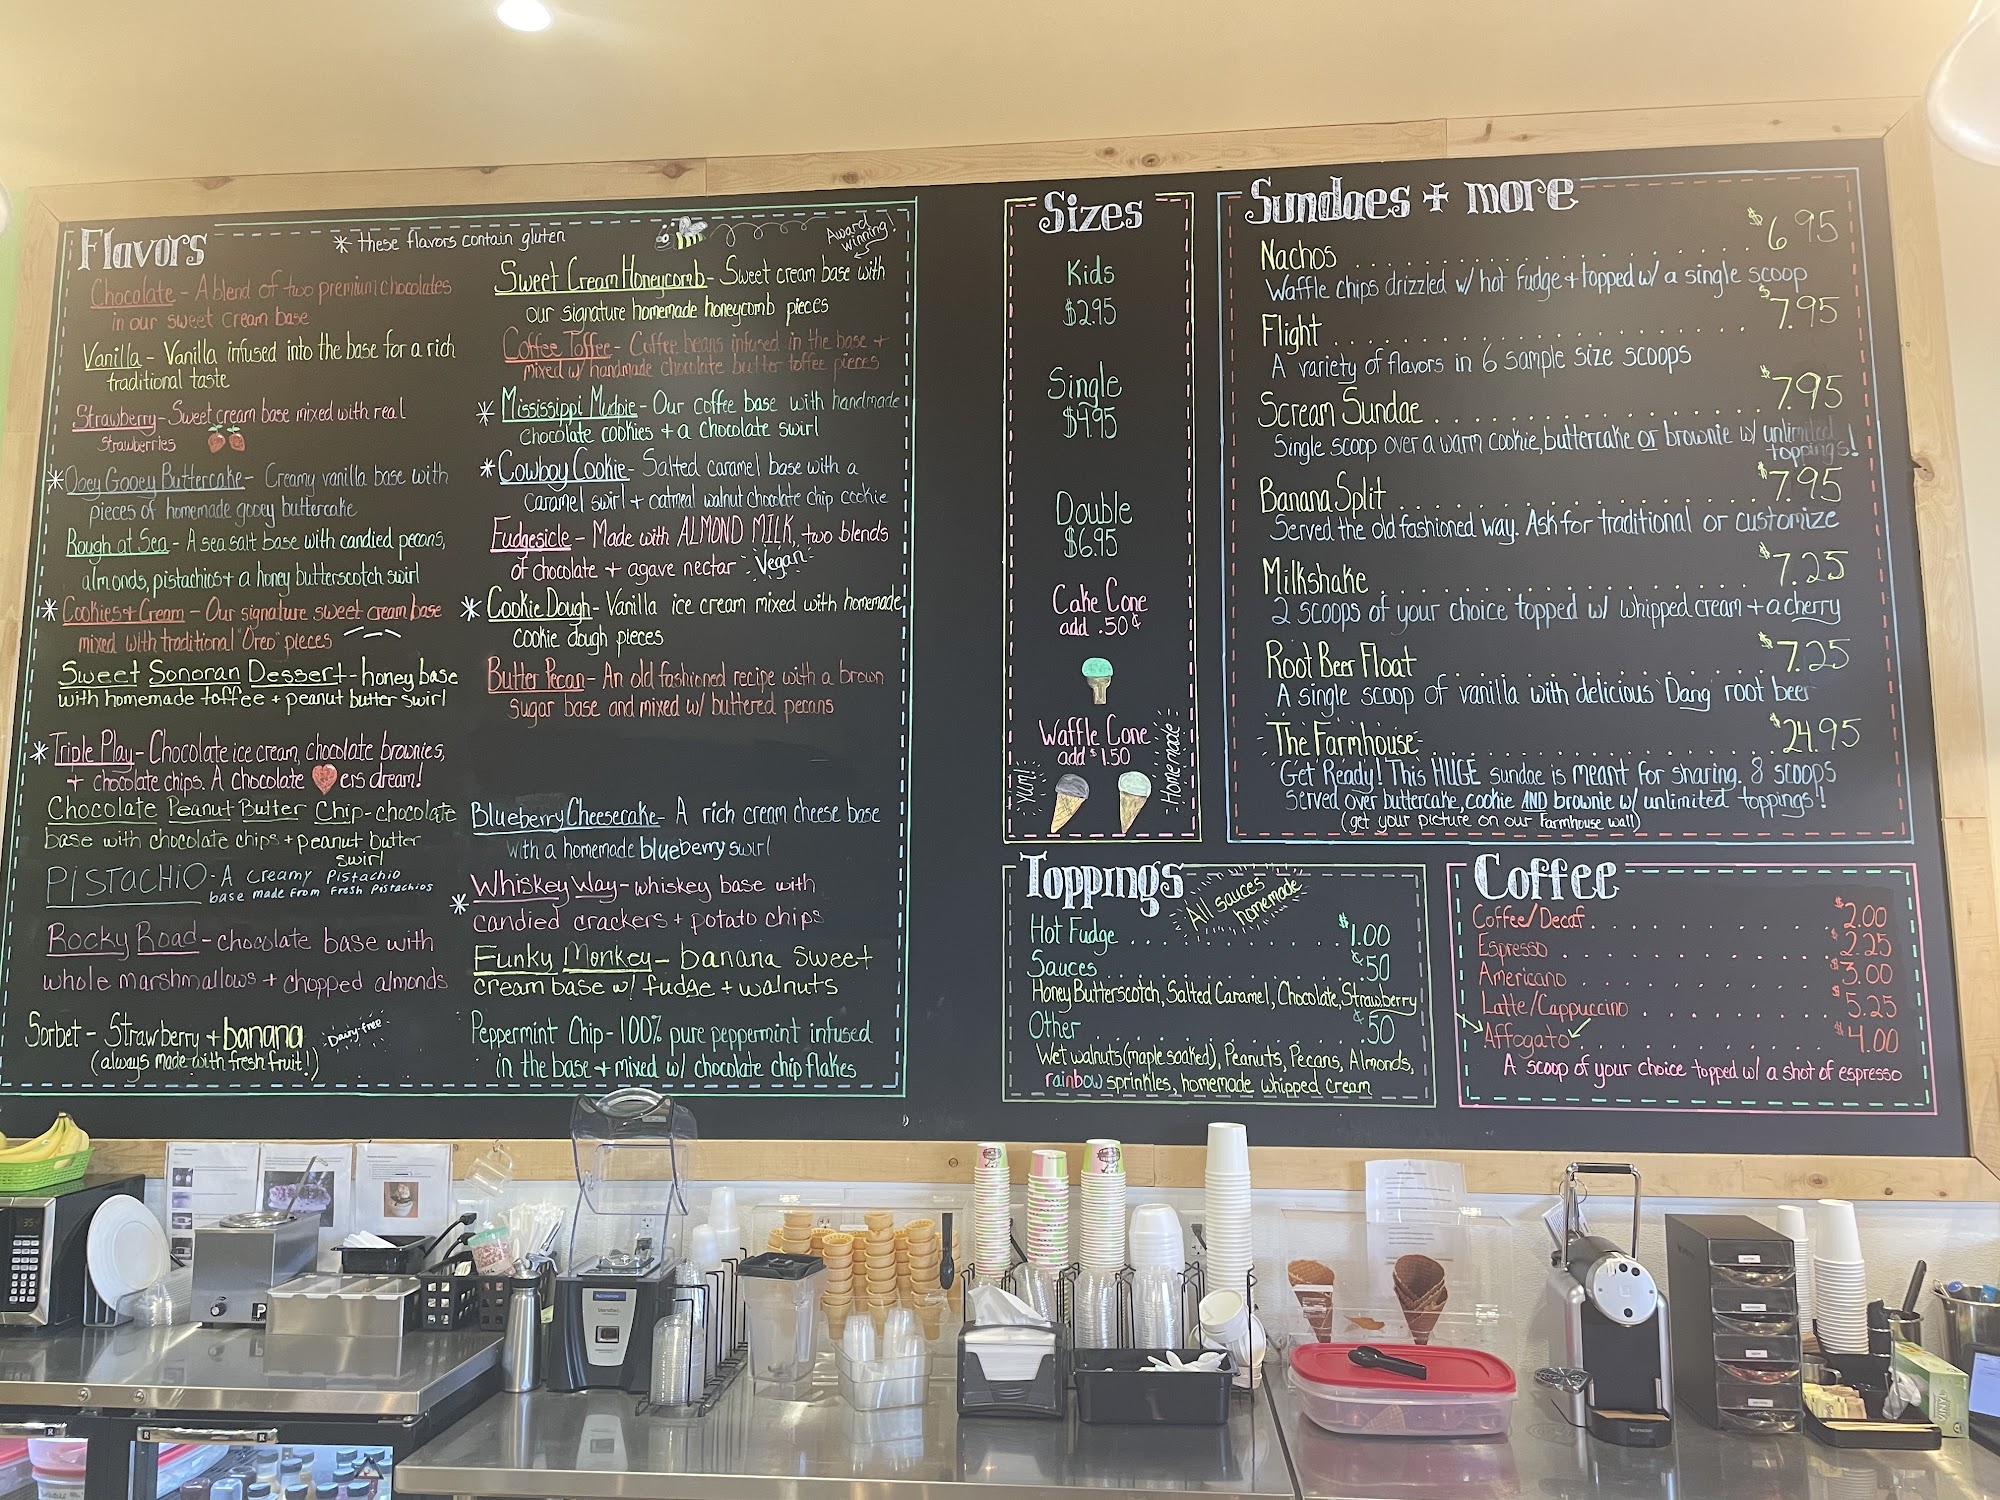 Flavors
* these flavors contain gluten
Chocolate - A blend of two premium chocolates
in our sweet cream base
Vanilla - Vanilla infused into the base for a rich
traditional taste
Strawberry - Sweet cream base mixed with real
strawberries
* Ooey Gooey Buttercake - Creamy vanilla base with
pieces of homemade gooey buttercake
Rough at Sea - A sea salt base with candied pecans,
almonds, pistachios + a honey butterscotch swirl
* Cookies + Cream - Our signature sweet cream base
mixed with traditional "Oreo" pieces
Sweet Sonoran Dessert - honey base
with homemade toffee + peanut butter swirl
* Triple Play - Chocolate ice cream, chocolate brownies,
+ chocolate chips. A chocolate ers dream!
Chocolate Peanut Butter Chip - chocolate
base with chocolate chips + peanut butter
swirl
PISTACHIO - A creamy Pistachio
base made from fresh pistachios
Rocky Road - chocolate base with
whole marshmallows + chopped almonds
Sorbet - Strawberry + banana
Dairy-free
(always made with fresh fruit!)
Award
winning!
Sweet Cream Honeycomb - Sweet cream base with
our signature homemade honeycomb pieces
Coffee Toffee - Coffee beans infused in the base +
mixed w/ handmade chocolate butter toffee pieces
* Mississippi Mudpie - Our coffee base with handmade
chocolate cookies + a chocolate swirl
* Cowboy Cookie - Salted caramel base with a
caramel swirl + oatmeal walnut chocolate chip cookie
Fudgesicle - Made with ALMOND MILK, two blends
of chocolate + agave nectar - Vegan
* Cookie Dough - Vanilla ice cream mixed with homemade
cookie dough pieces
Butter Pecan - An old fashioned recipe with a brown
sugar base and mixed w/ buttered pecans
Blueberry Cheesecake - A rich cream cheese base
with a homemade blueberry swirl
* Whiskey Way - whiskey base with
candied crackers + potato chips
Funky Monkey - banana sweet
cream base w/ fudge + walnuts
Peppermint Chip - 100% pure peppermint infused
in the base + mixed w/ chocolate chip flakes
Sizes
Kids
$2.95
Single
$4.95
Double
$6.95
Cake Cone
add .50¢
Waffle Cone
add $1.50
Yum!
Homemade
Sundaes + more
Nachos $6.95
Waffle chips drizzled w/ hot fudge + topped w/ a single scoop
Flight $7.95
A variety of flavors in 6 sample size scoops
Scream Sundae $7.95
Single scoop over a warm cookie, buttercake or brownie w/ unlimited
toppings!
Banana Split $7.95
Served the old fashioned way. Ask for traditional or customize
Milkshake $7.25
2 scoops of your choice topped w/ whipped cream + a cherry
Root Beer Float $7.25
A single scoop of vanilla with delicious 'Dang' root beer
The Farmhouse $24.95
Get Ready! This HUGE sundae is meant for sharing. 8 scoops
served over buttercake, cookie AND brownie w/ unlimited toppings!
(get your picture on our Farmhouse wall)
Toppings
All sauces
homemade
Hot Fudge $1.00
Sauces ¢.50
Honey Butterscotch, Salted Caramel, Chocolate, Strawberry
Other ¢.50
Wet walnuts (maple soaked), Peanuts, Pecans, Almonds,
rainbow sprinkles, homemade whipped cream
Coffee
Coffee/Decaf $2.00
Espresso $2.25
Americano $3.00
Latte/Cappuccino $5.25
Affogato $4.00
A scoop of your choice topped w/ a shot of espresso